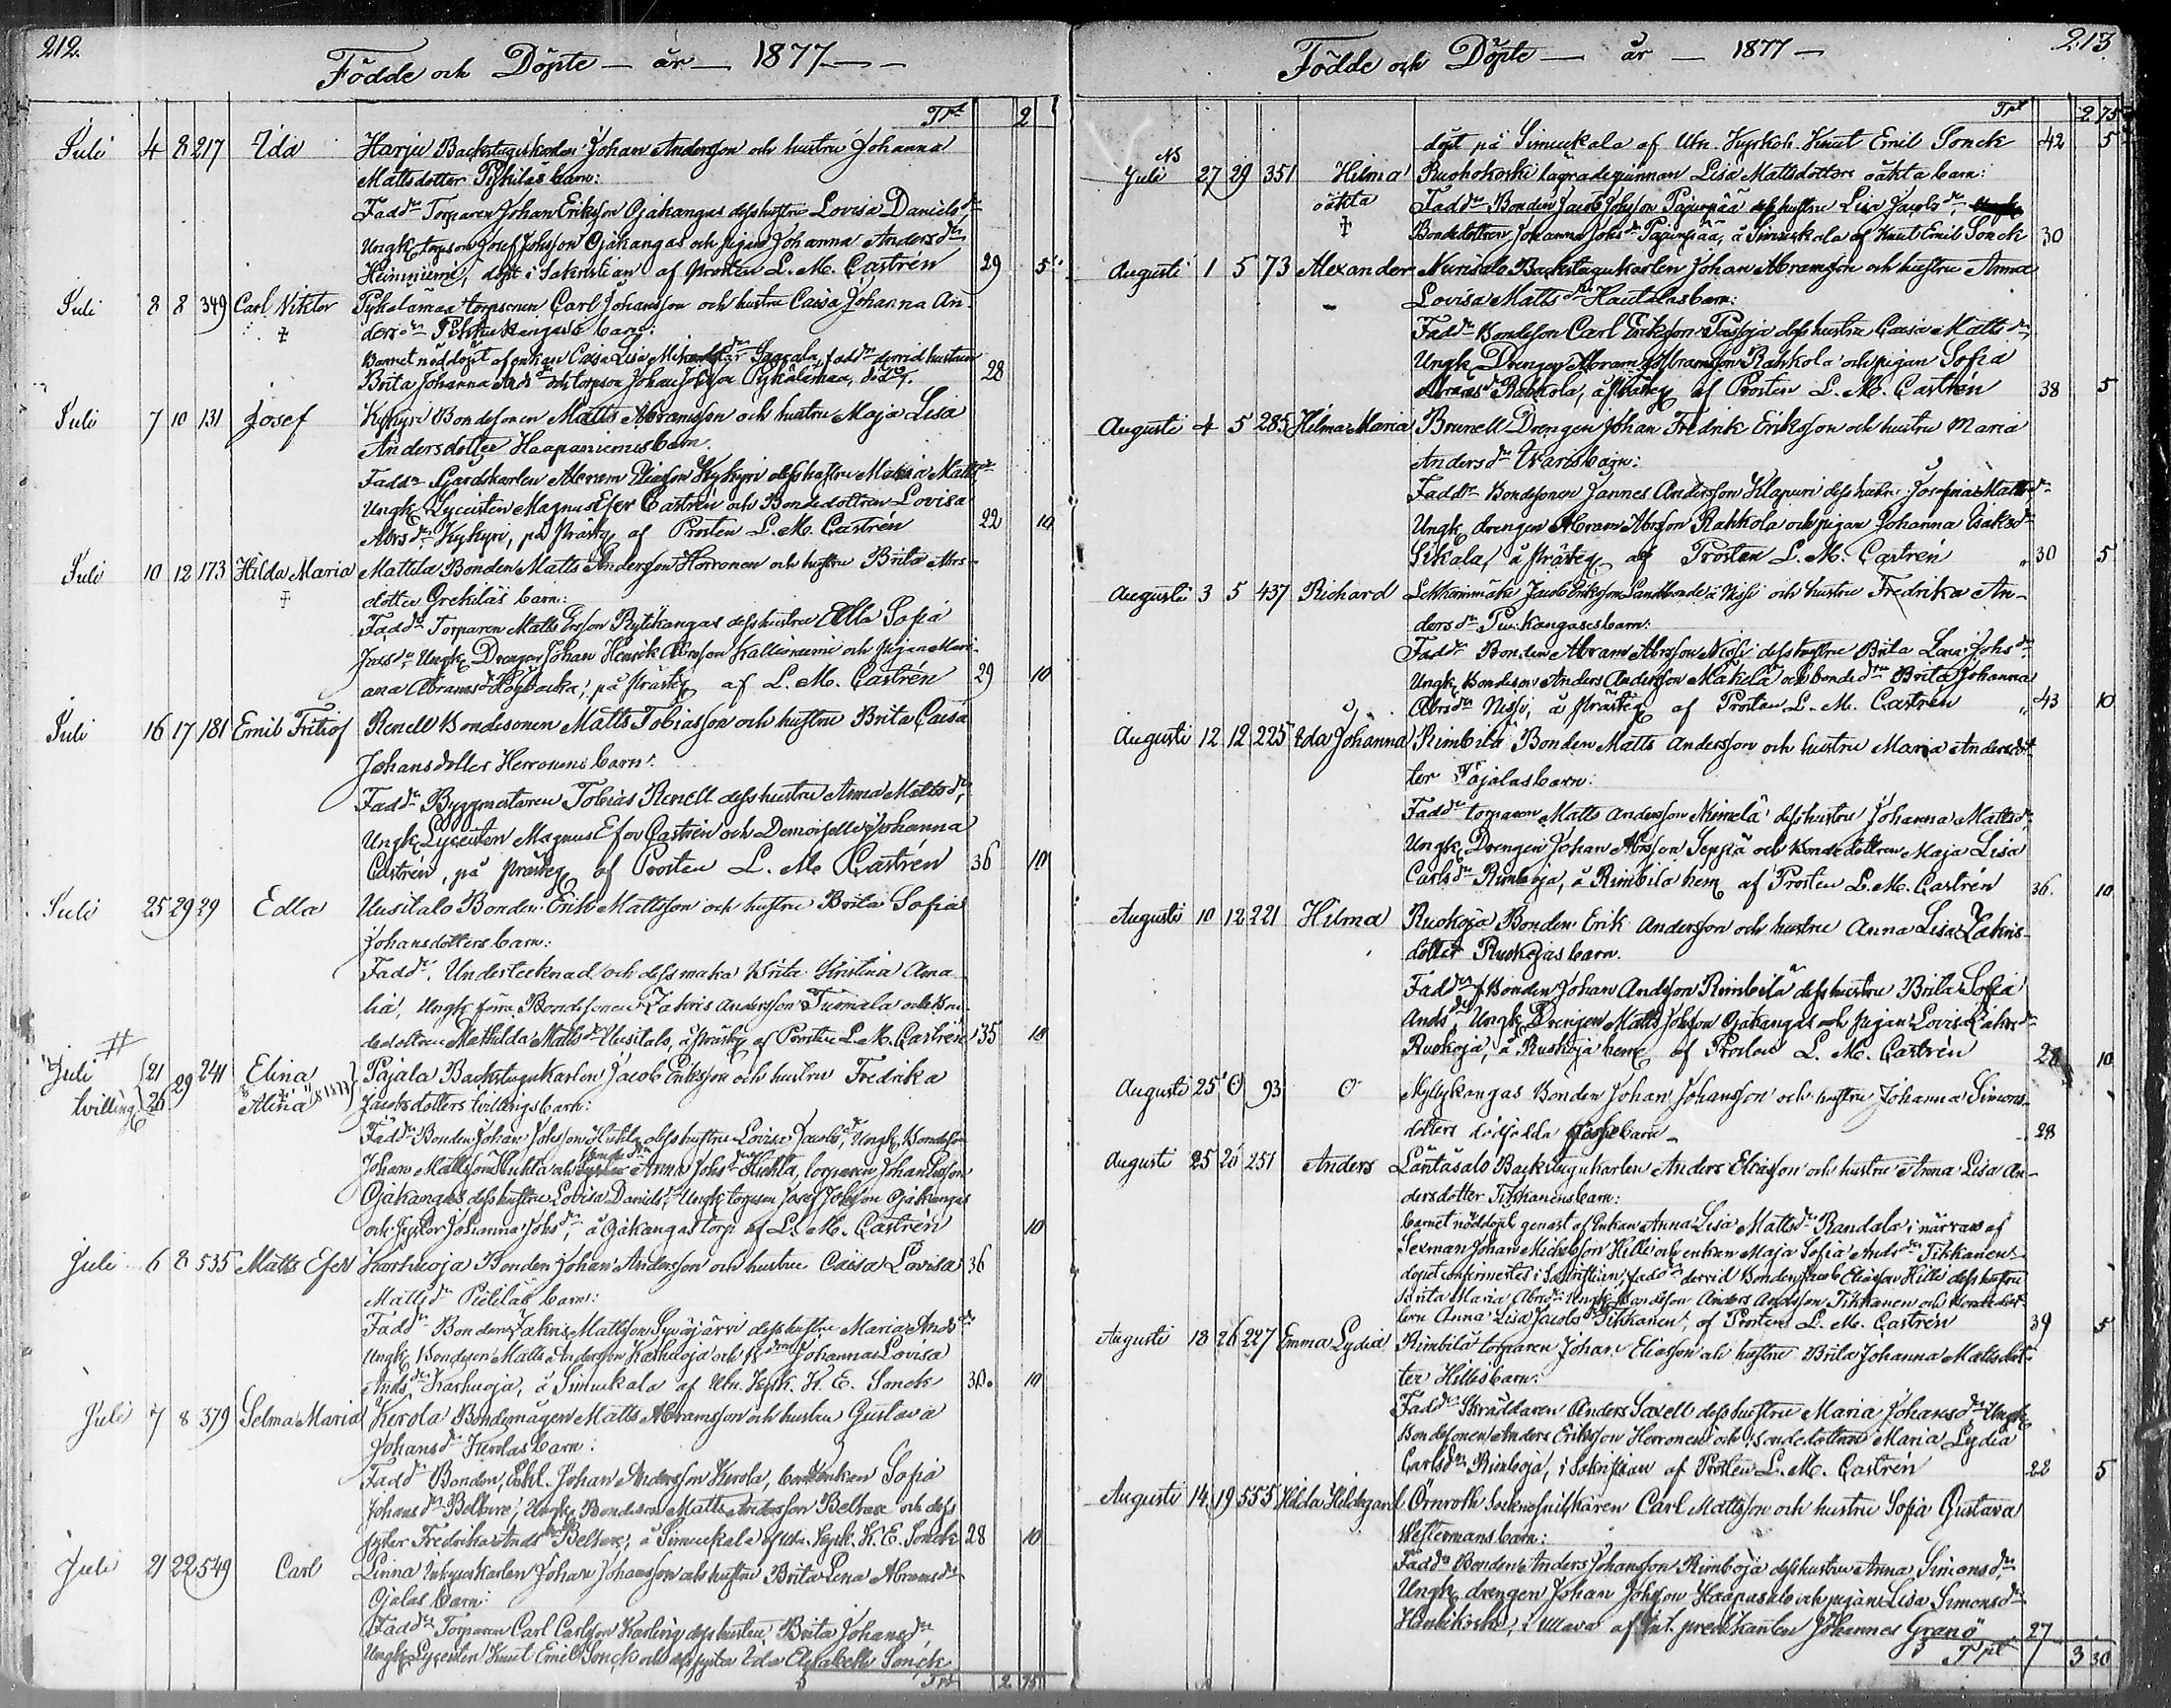 212.
Födde och Döpte — år — 1877 —
Trt 2
Juli 4 8 217 Ida Harju Backstugukarlen Johan Andersson och hustru Johanna
Mattsdotter Pihilas barn:
Faddr Torparen Johan Eriksson Ojakangas dess hustru Lovisa Daniels dr
Ungk torpson Josef Johsson Ojakangas och pigan Johanna Anders dr
Heiniemi, döpt i Sakristian af Prosten L. M. Castrén 29 5
Juli 8 8 349 Carl Viktor Pykälämaa torpsonen Carl Johansson och hustru Caisa Johanna An-
ders dr barn:
Barnet nöddöpt af enkan Caisa Lisa faddr dervid hustrun
Brita Johanna Ands dr och torpson Johan Johsson Pykälämaa, död 28
Juli 7 10 131 Josef Kykyri Bondesonen Matts Abramsson och hustru Maja Lisa
Andersdotter Haapaniemis barn
Faddr Gjardskarlen Abram Eliasson Kykyri dess hustru Maria Matts dr
Ungk Lyceisten Magnus Efer Castrén och Bondedottren Lovisa
Abrs dr Kykyri, på Prästg af Prosten L. M. Castrén 22 10
Juli 10 12 173 Hilda Maria Mattila Bonden Matts Andersson Horronen och hustru Brita Abrs-
dotter Grekilas barn:
Faddr Torparen Matts Ersson Rytikangas dess hustru Edla Sofia
Jacs dr, Ungk Drengen Johan Henrik Abrsson Kallioniemi och pigan Mari-
ana Abrams dr Högbacka, på Prästg af L. M. Castrén 29 10
Juli 16 17 181 Emil Fritiof Renell Bondesonen Matts Tobiasson och hustru Brita Caisa
Johansdotter Herronens barn:
Faddr Byggmästaren Tobias Renell dess hustru Anna Matts dr,
Ungk Lyceisten Magnus Efer Castrén och Demoiselle Johanna
Castrén, på Prästg af Prosten L. M. Castrén 36 10
Juli 25 29 29 Edla Uusitalo Bonden Erik Mattsson och hustru Brita Sofia
Johansdotters barn:
Faddr. Undertecknad och dess maka Brita Kristina Ama-
lia, Ungk förra Bondesonen Zakris Andersson Tuomala och Bon-
dedottren Mathilda Matts dr Uusitalo, å Prästg af Prosten L. M. Castrén 35 10
#
Juli 21 29 241 Elina Pajala Backstugukarlen Jacob Eriksson och hustru Fredrika
tvilling 26 Alina Jacobsdotters tvillingsbarn:
Faddr Bonden Johan Johsson Huhta dess hustru Lovisa Jacobs dr, Ungk Bondeson
Johan Mattsson Huhta och Anna Johs dr Huhta, torparen Johan Ersson
Ojakangas dess hustru Lovisa Daniels dr, Ungk torpson Josef Johsson Ojakangas
och Syster Johanna Johs dr, å Ojakangas torp af L. M. Castrén 10
Juli 6 8 535 Matts Efer Korhuoja Bonden Johan Andersson och hustru Caisa Lovisa 36
Matts dr Pietilas barn:
Faddr Bonden Zakris Mattsson Syväjärvi dess hustru Maria Ands dr
Ungk Bondeson Matts Andersson Karhuoja och B Johanna Lovisa
Ands dr Karhuoja, å Simukala af Utn. Kyrk. K. E. Sonck 30. 10
Juli 7 8 379 Selma Maria Kerola Bondemågen Matts Abramsson och hustru Gustava
Johans dr Kerolas barn:
Faddr Bonden, Enkl. Johan Andersson Kerola, Sofia
Johans dr Beltare, Ungk Bondeson Matts Andersson Beltare och dess
syster Fredrika Ands dr Beltare, å Simukala af Utn. Kyrk. K. E. Sonck 28 10
Juli 21 22 549 Carl Linna Inhyseskarlen Johan Johansson och hustru Brita Lena Abrams dr
Ojalas barn:
Faddr Torparen Carl Carlsson Karling dess hustru Brita Johans dr,
Ungk Lyceisten Knut Emil Sonck och dess syster Ida Elisabeth Sonck
Trt 2 75
213.
Födde och Döpte — år — 1877 —
Trt 2 75
döpt på Simukala af Utn. Kyrkoh. Knut Emil Sonck 42 5
NB
Juli 27 29 351 Hilma Ruohokoski lägradequinnan Lisa Mattsdotters oäkta barn:
oäkta Faddr Bonden Jacob Johsson Pajunpää dess hustru Lisa Jacobs dr,
Bondedottren Johanna Johs dr Pajunpää, å Simukala af Knut Emil Sonck 30
Augusti 1 5 73 Alexander Nurisalo Backstugukarlen Johan Abramsson och hustru Anna
Lovisa Matts dr Hautalas barn:
Faddr Bondeson Carl Eriksson Passoja dess hustru Caisa Matts dr,
Ungk Drengen Abram Abramsson Rahkola och pigan Sofia
Abrams dr Rahkola, å Prästg af Prosten L. M. Castrén 38 5
Augusti 4 5 285 Hilma Maria Brunell Drengen Johan Fredrik Eriksson och hustru Maria
Anders dr Waris barn:
Faddr Bondesonen Jannes Andersson Klapuri dess hustru Josefina Matts dr
Ungk drengen Abram Abrsson Rahkola och pigan Johanna Isaks dr
Sikala, å Prästg af Prosten L. M. Castrén 30 5
Augusti 3 5 437 Richard Lekkerimäki Jacob Eriksson Landbonde å Nissi och hustru Fredrika An-
ders dr Pu kangases barn:
Faddr Bonden Abram Abrsson Nissi dess hustru Brita Lena Johs dr
Ungk Bondeson Anders Andersson Mäkelä och bonde dr Brita Johanna
Abrs dr Nissi, å Prästg af Prosten L. M. Castrén 43 10
Augusti 12 12 225 Ida Johanna Rimbilä Bonden Matts Andersson och hustru Maria Andersdot-
ter Töjälas barn:
Faddr torparen Matts Andersson Niemelä dess hustru Johanna Matts dr,
Ungk Drengen Johan Abrsson Seppä och Bondedottren Maja Lisa
Carls dr Rimboja, å Rimbilä hem af Prosten L. M. Castrén 36. 10
Augusti 10 12 221 Hilma Ruokoja Bonden Erik Andersson och hustru Anna Lisa Zakris-
dotter Ruokojas barn.
Faddr Bonden Johan Andsson Rimbilä dess hustru Brita Sofia
Ands dr, Ungk Drengen Matts Johsson Ojakangas och pigan Lovisa Zakrs dr
Ruokoja, å Ruokoja hem af Prosten L. M. Castrén 28 10
Augusti 25 0 93 0 Myllykangas Bonden Johan Johansson och hustru Johanna Simons-
dotters dödfödda gossebarn 28
Augusti 25 26 251 Anders Läntäsalo Backstugukarlen Anders Eliasson och hustru Anna Lisa An-
dersdotter Tikkanens barn:
barnet nöddöpt genast af Enkan Anna Lisa Matts dr Randala i närvaro af
Sexman Johan Michelsson Hilli och enkan Maja Sofia Ands dr Tikkanen
dopet confirmertes i Sakristian, faddr dervid Bonden Jacob Eliasson Hilli dess hustru
Santa Maria Abrs dr Ungk Bondeson Anders Andsson Tikkanen och Bondedot-
tern Anna Lisa Jacobs dr Tikkanen, af Prosten L. M. Castrén 39 5
Augusti 18 26 227 Emma Lydia Rimbilä torparen Johan Eliasson och hustru Brita Johanna Mattsdot-
ter Hillis barn:
Faddr Skräddaren Anders Saxell dess hustru Maria Johans dr Ungk
Bondesonen Anders Eriksson Herronen och Bondedottren Maria Lydia
Carls dr Rimboja, i Sakristian af Prosten L. M. Castrén 22 5
Augusti 14 19 555 Hilda Hildegard Örnroth Sockneskräddaren Carl Mattsson och hustru Sofia Gustava
Westermans barn:
Faddr Bonden Anders Johansson Rimboja dess hustru Anna Simons dr,
Ungk drengen Johan Johsson Haapasalo och pigan Lisa Simons dr
Hanhikoski, i Ullava af int. predikanten Johannes Granö 27
Trpt 3 30